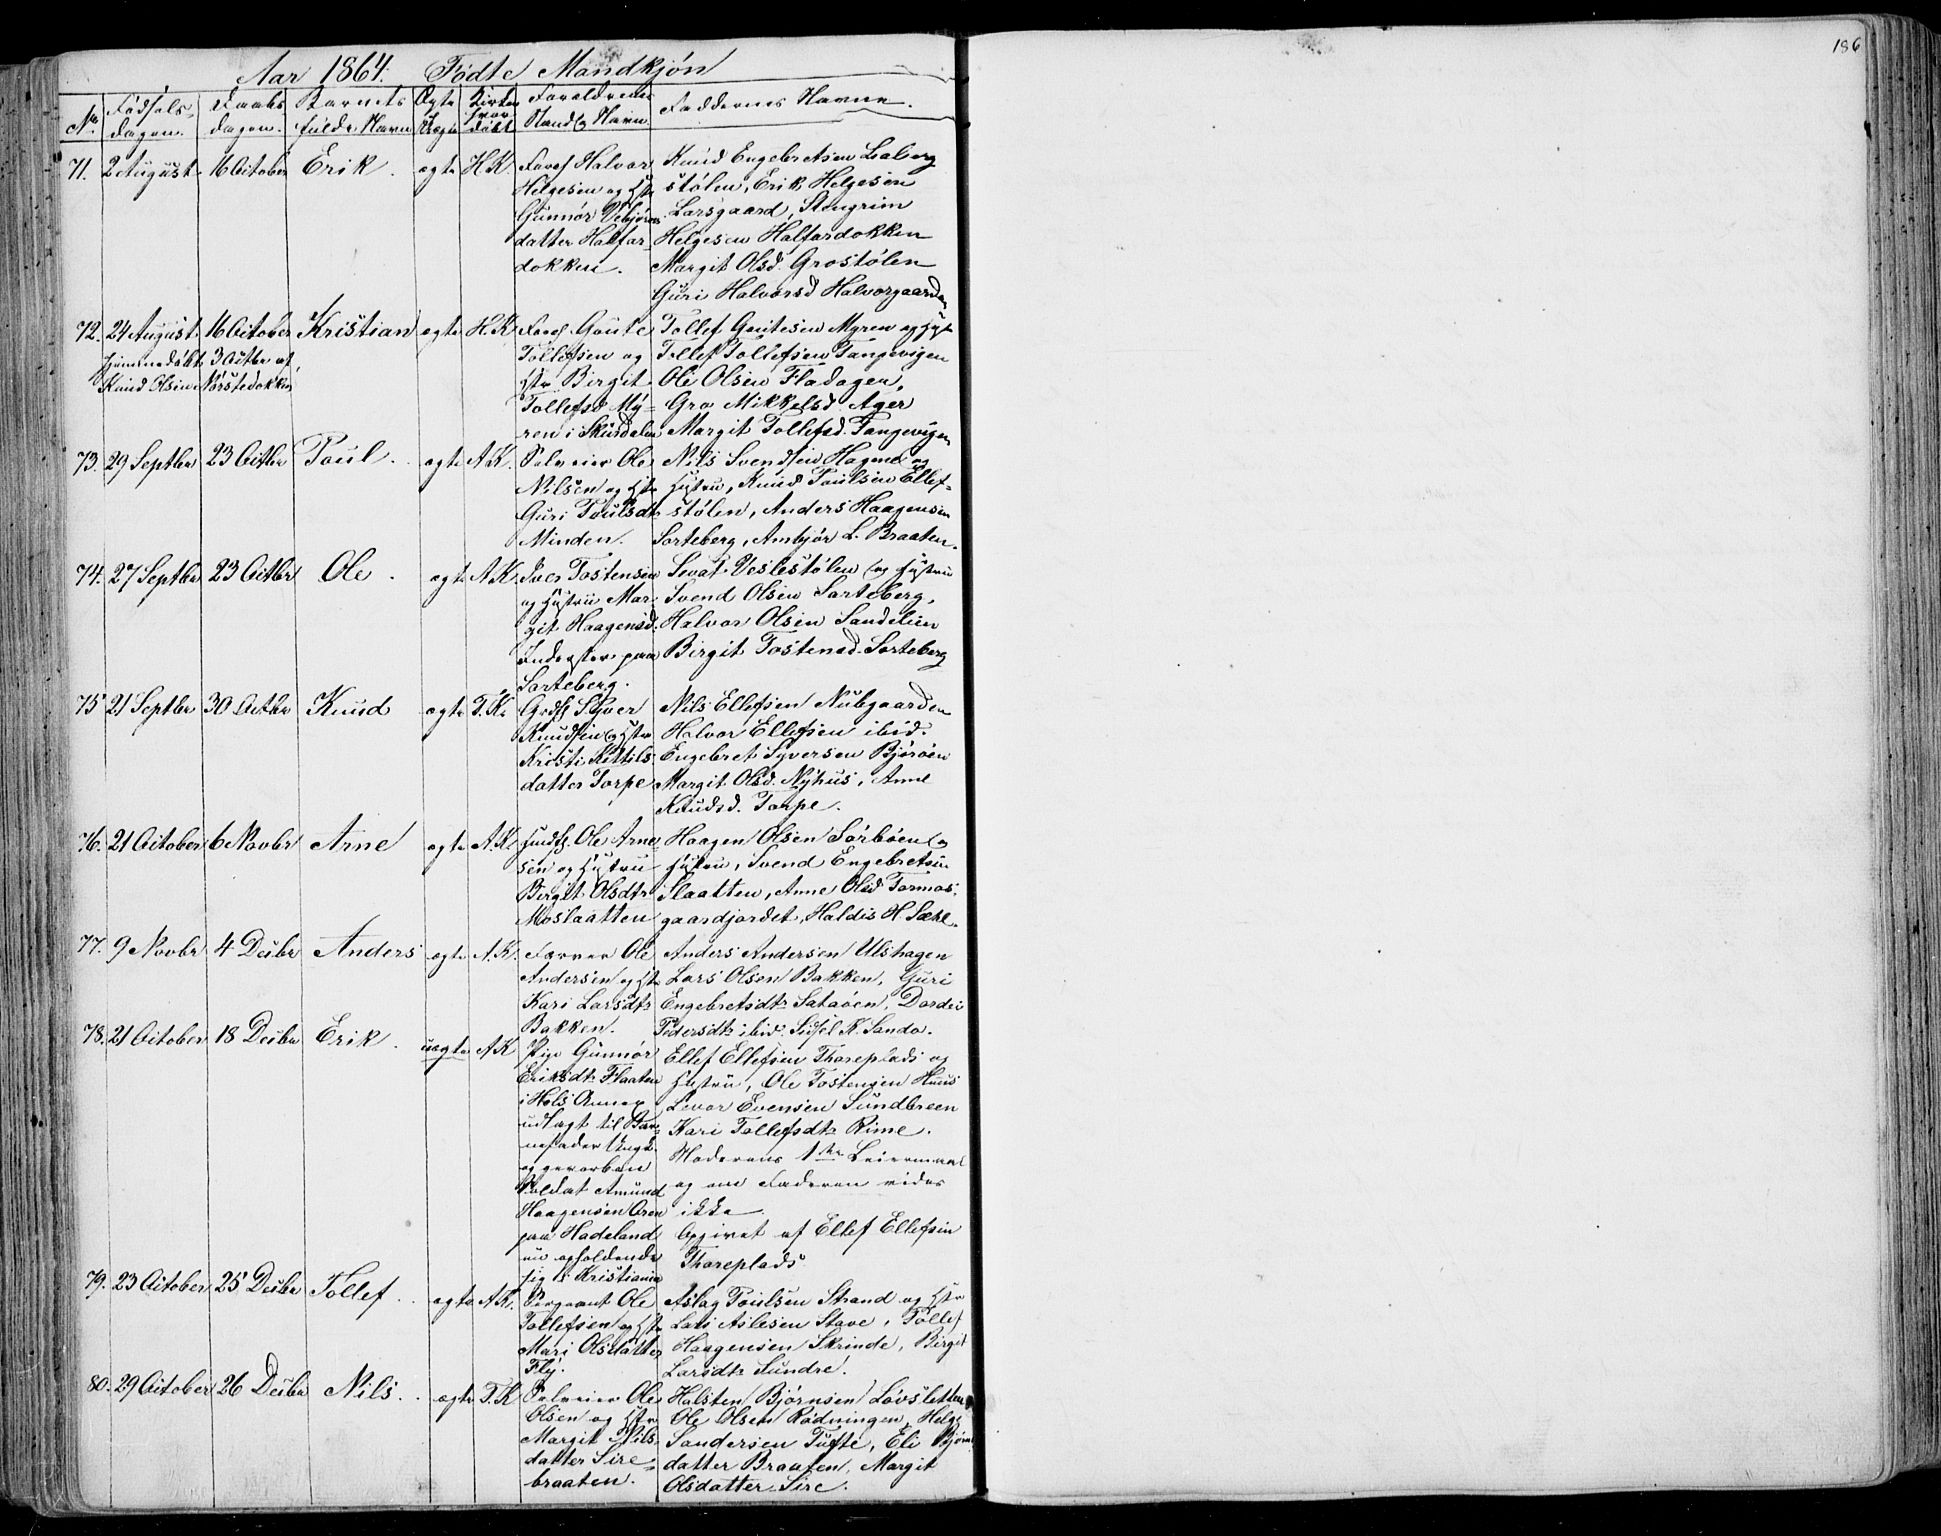 186
Aar 1864. Fødte Mandkjøn
No. Fødsels- dagen. Daabs dagen. Barnets fulde Navn Ægte Uægte Kirke hvor døbt Forældrenes Stand og Navn Faddernes Navne.
71. 2 August 16 October Erik. ægte H.K.
Halvor
Helgesen og Hstr
Gunnor Vebjørns-
datter Halfar-
dokken.
Knud Engebretsen
stølen, Erik Helgesen
Larsgaard, Stengrim
Helgesen Halfardokken
Margit Olsd. Grostølen
Guri Halvorsd Halvorgaarden
72. 24 August 16 October Kristian ægte H.K.
hjemmedøbt 3 Octbr af
Knud Olsen Næstedokken
Goute
Tollefsen og
Hstr Birgit
Tollefsd My-
ren i Skurdalen
Tollef Goutesen Myren og Hstr
Tollef Tollefsen Tangevigen
Ole Olsen Fladagen,
Gro Mikkelsd. Ager
Margit Tollefsd. Tangevigen
73. 29 Septbr 23 Octbr Poul. ægte A.K.
Selveier Ole
Nilsen og Hstr
Guri Poulsdtr
Minden.
Nils Svendsen Hagene og
Hustru, Knud Poulsen Ellef-
stølen, Anders Haagensen
Sorteberg, Ambjør L. Braaten.
74. 27 Septbr 23 Octbr Ole. ægte A.K.
Iver Tostensen
og Hustru Mar-
git Haagensd.
Inderster paa
Sorteberg.
Sevat Veslestølen og Hustru
Svend Olsen Sorteberg,
Halvor Olsen Sandelien
Birgit Tostensd. Sorteberg
75 21 Septbr 30 Octbr Knud ægte T.K.
Grdb. Syver
Knudsen og Hstr
Kristi Kittils-
datter Torpe
Nils Ellefsen Nubgaarden
Halvor Ellefsen ibid.
Engebret Syversen Bjøröen
Margit Olsd. Nyhus, Anne
Knudsd. Torpe.
76. 21 October 6 Novbr Arne ægte A.K.
Husfd. Ole Arne-
sen og Hustru
Birgit Olsdtr
Moslaatten
Haagen Olsen Sørbøen og
Hustru, Svend Engebretsen
Slaatten, Anne Olsd Tormos-
gaardjordet, Haldis H. Sæhl.
77. 9 Novbr 4 Decbr Anders ægte A.K.
Ole
Andersen og Hstr
Kari Larsdtr
Bakken.
Anders Andersen Ulshagen
Lars Olsen Bakken, Guri
Engebretsdtr Sataøen, Dordei
Pedersdtr ibid. Sidsel K. Sando.
78. 21 October 18 Decbr Erik. uægte A.K.
Pige Gunnor
Eriksdtr Flaaten
i Hols Annex
udlagt til Bar-
nefader Ungk.
og gevorben
Soldat Amund
Haagensen Oren
paa Hadeland
nu opholdende
sig i Kristiania
Ellef Ellefsen Thoreplads og
Hustru, Ole Tostensen Huus
Levor Evensen Sundbreen
Kari Tollefsdtr Rime.
Moderens 1ste Leiermaal
og om Faderen vides
ikke
Opgivet af Ellef Ellefsen
Thoreplads
79. 23 October 25 Decbr Tollef. ægte A.K.
Sergeant Ole
Tollefsen og Hstr
Mari Olsdatter
Fly.
Aslag Poulsen Strand og Hstr
Lars Aslesen Stave, Tollef
Haagensen Skrinde, Birgit
Larsdtr Sundre.
80. 29 October 26 Decbr Nils. ægte T.K.
Selveier Ole
Olsen og Hstr
Margit Nils-
datter Sire-
braaten.
Halsten Bjørnsen Løvsletten
Ole Olsen Rødningen, Helge
Sandersen Tufte, Eli Bjørns
datter Braaten, Margit
Olsdatter Sire.